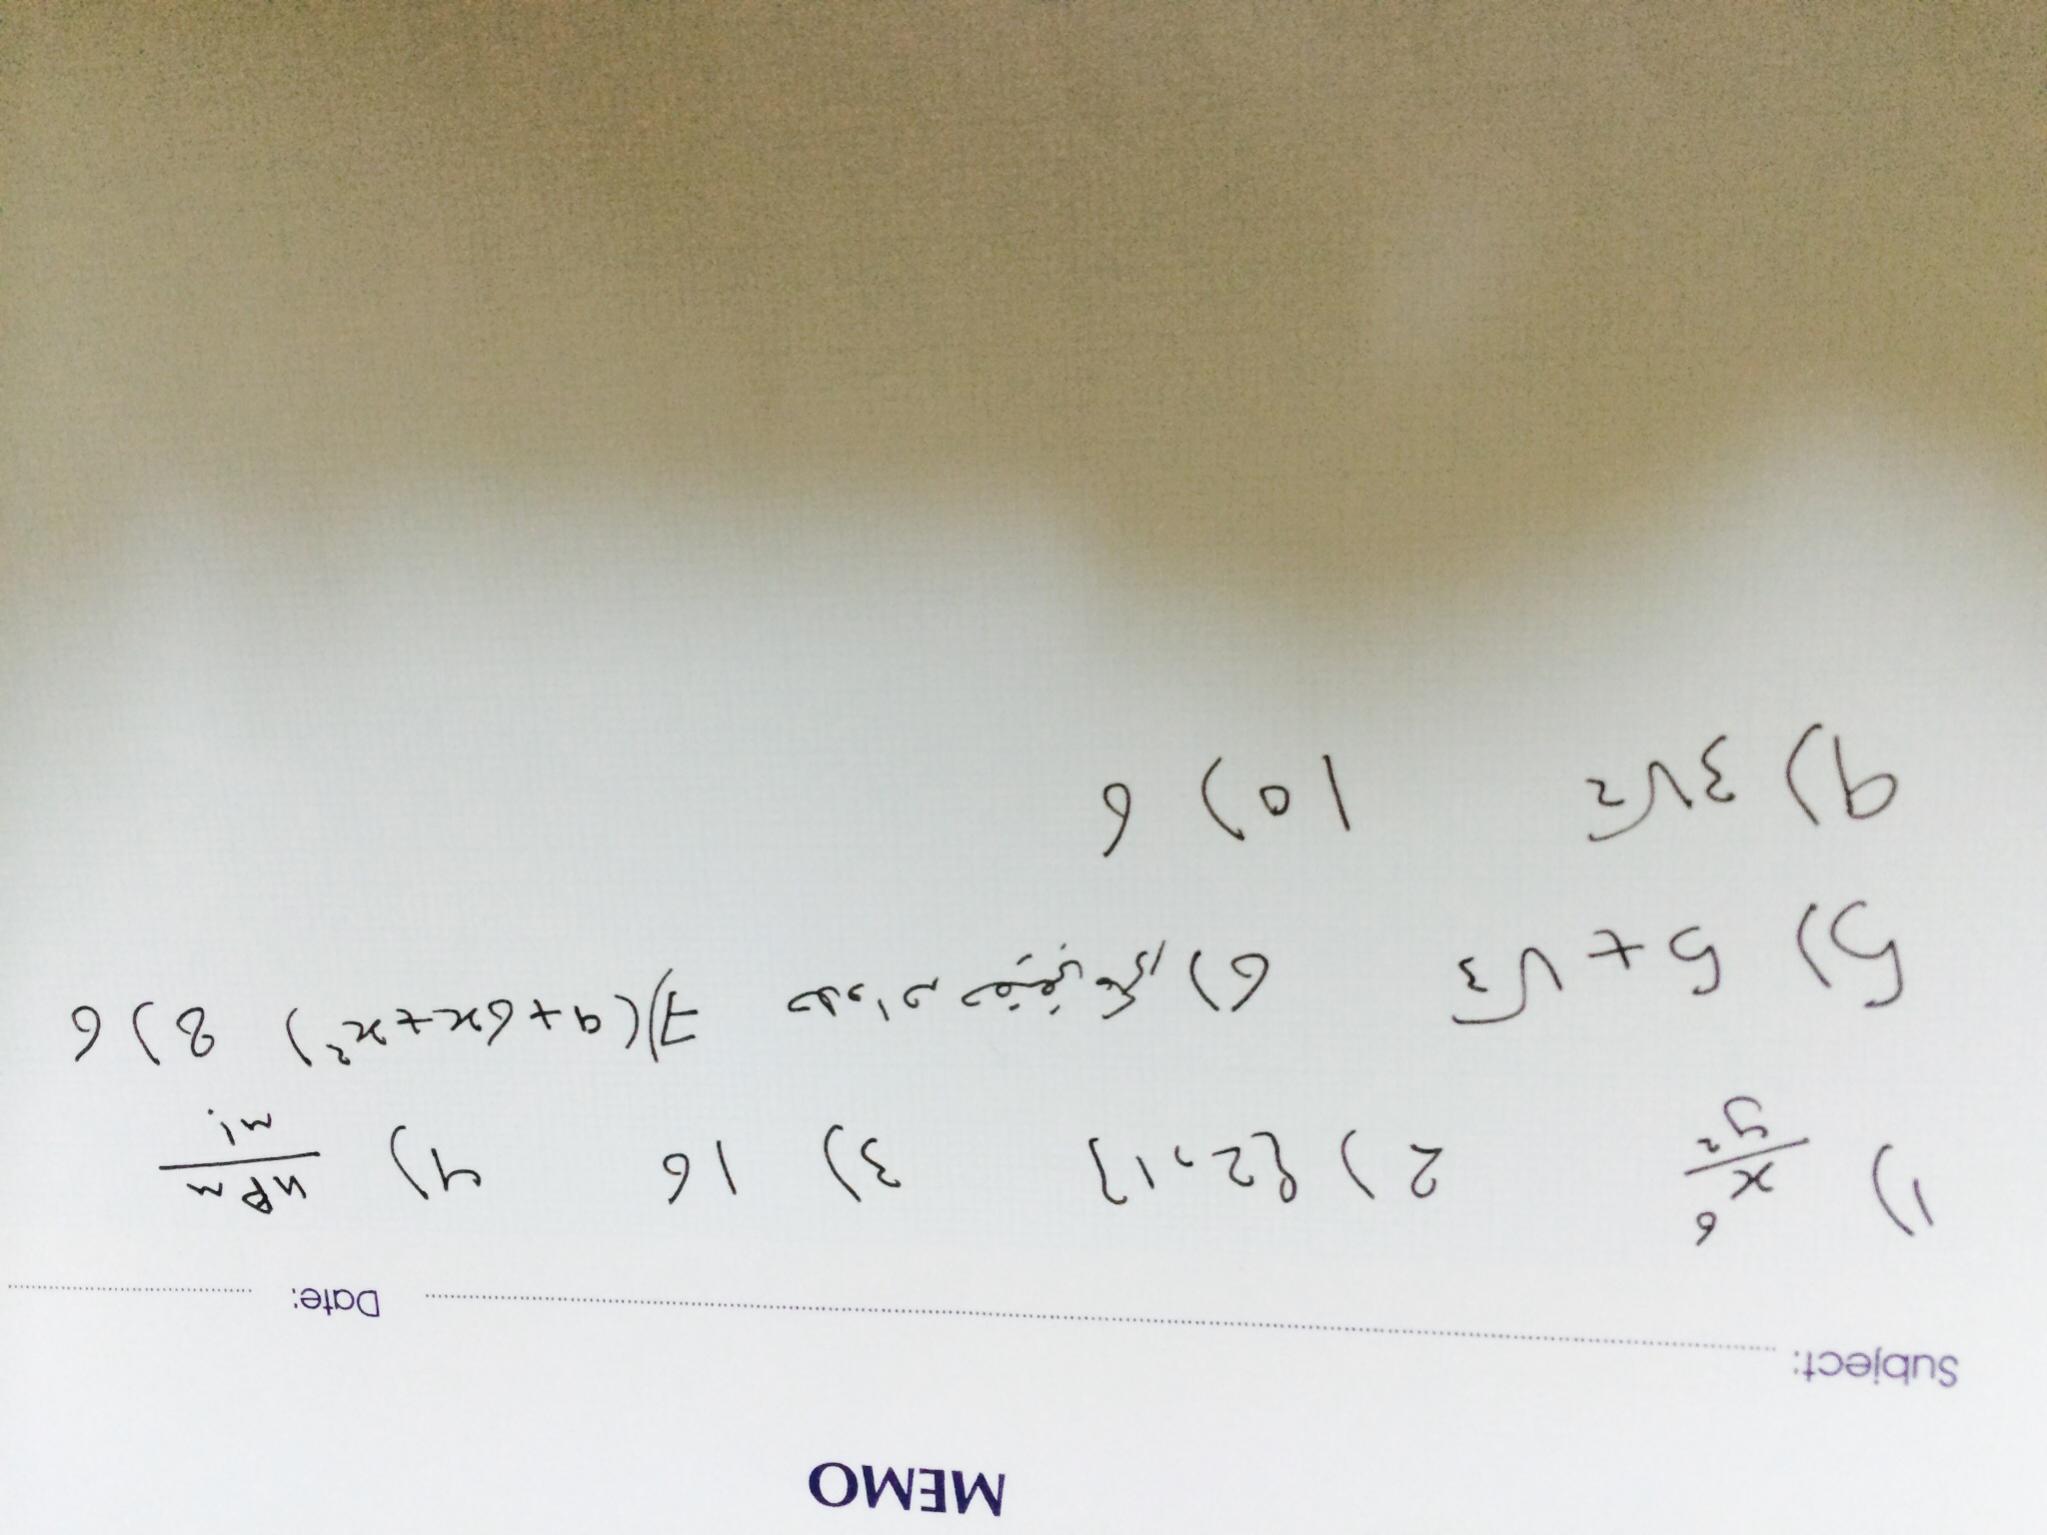 MEMO
Subject: Date:
1) x⁶/y² 2) {2,1} 3) 16 4) nPm/m!
5) 5+√3 6) 7) (9+6x+x²) 8) 6
9) 3√2 10) 6